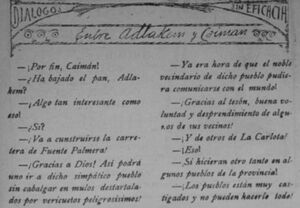 DIALOGOS
EN EFICACIA
Entre Adlakem y Caiman
—¡Por fin, Caimán!
—¿Ha bajado el pan, Adla-
kem?
—¡Algo tan interesante como
eso!
—¿Sí?
—Va a construirse la carre-
tera de Fuente Palmera!
—¡Gracias a Dios! Así podrá
uno ir a dicho simpático pueblo
sin cabalgar en mulos destartala-
dos por vericuetos peligrosísimos!
—Ya era hora de que el noble
vecindario de dicho pueblo pudie-
ra comunicarse con el mundo!
—¡Gracias al tesón, buena vo-
luntad y desprendimiento de algu-
nos de sus vecinos!
—¡Y de otros de La Carlota!
—¡Eso!
—Si hicieran otro tanto en algu-
nos pueblos de la provincia!
—¡Los pueblos están muy cas-
tigados y no pueden hacerlo todo!